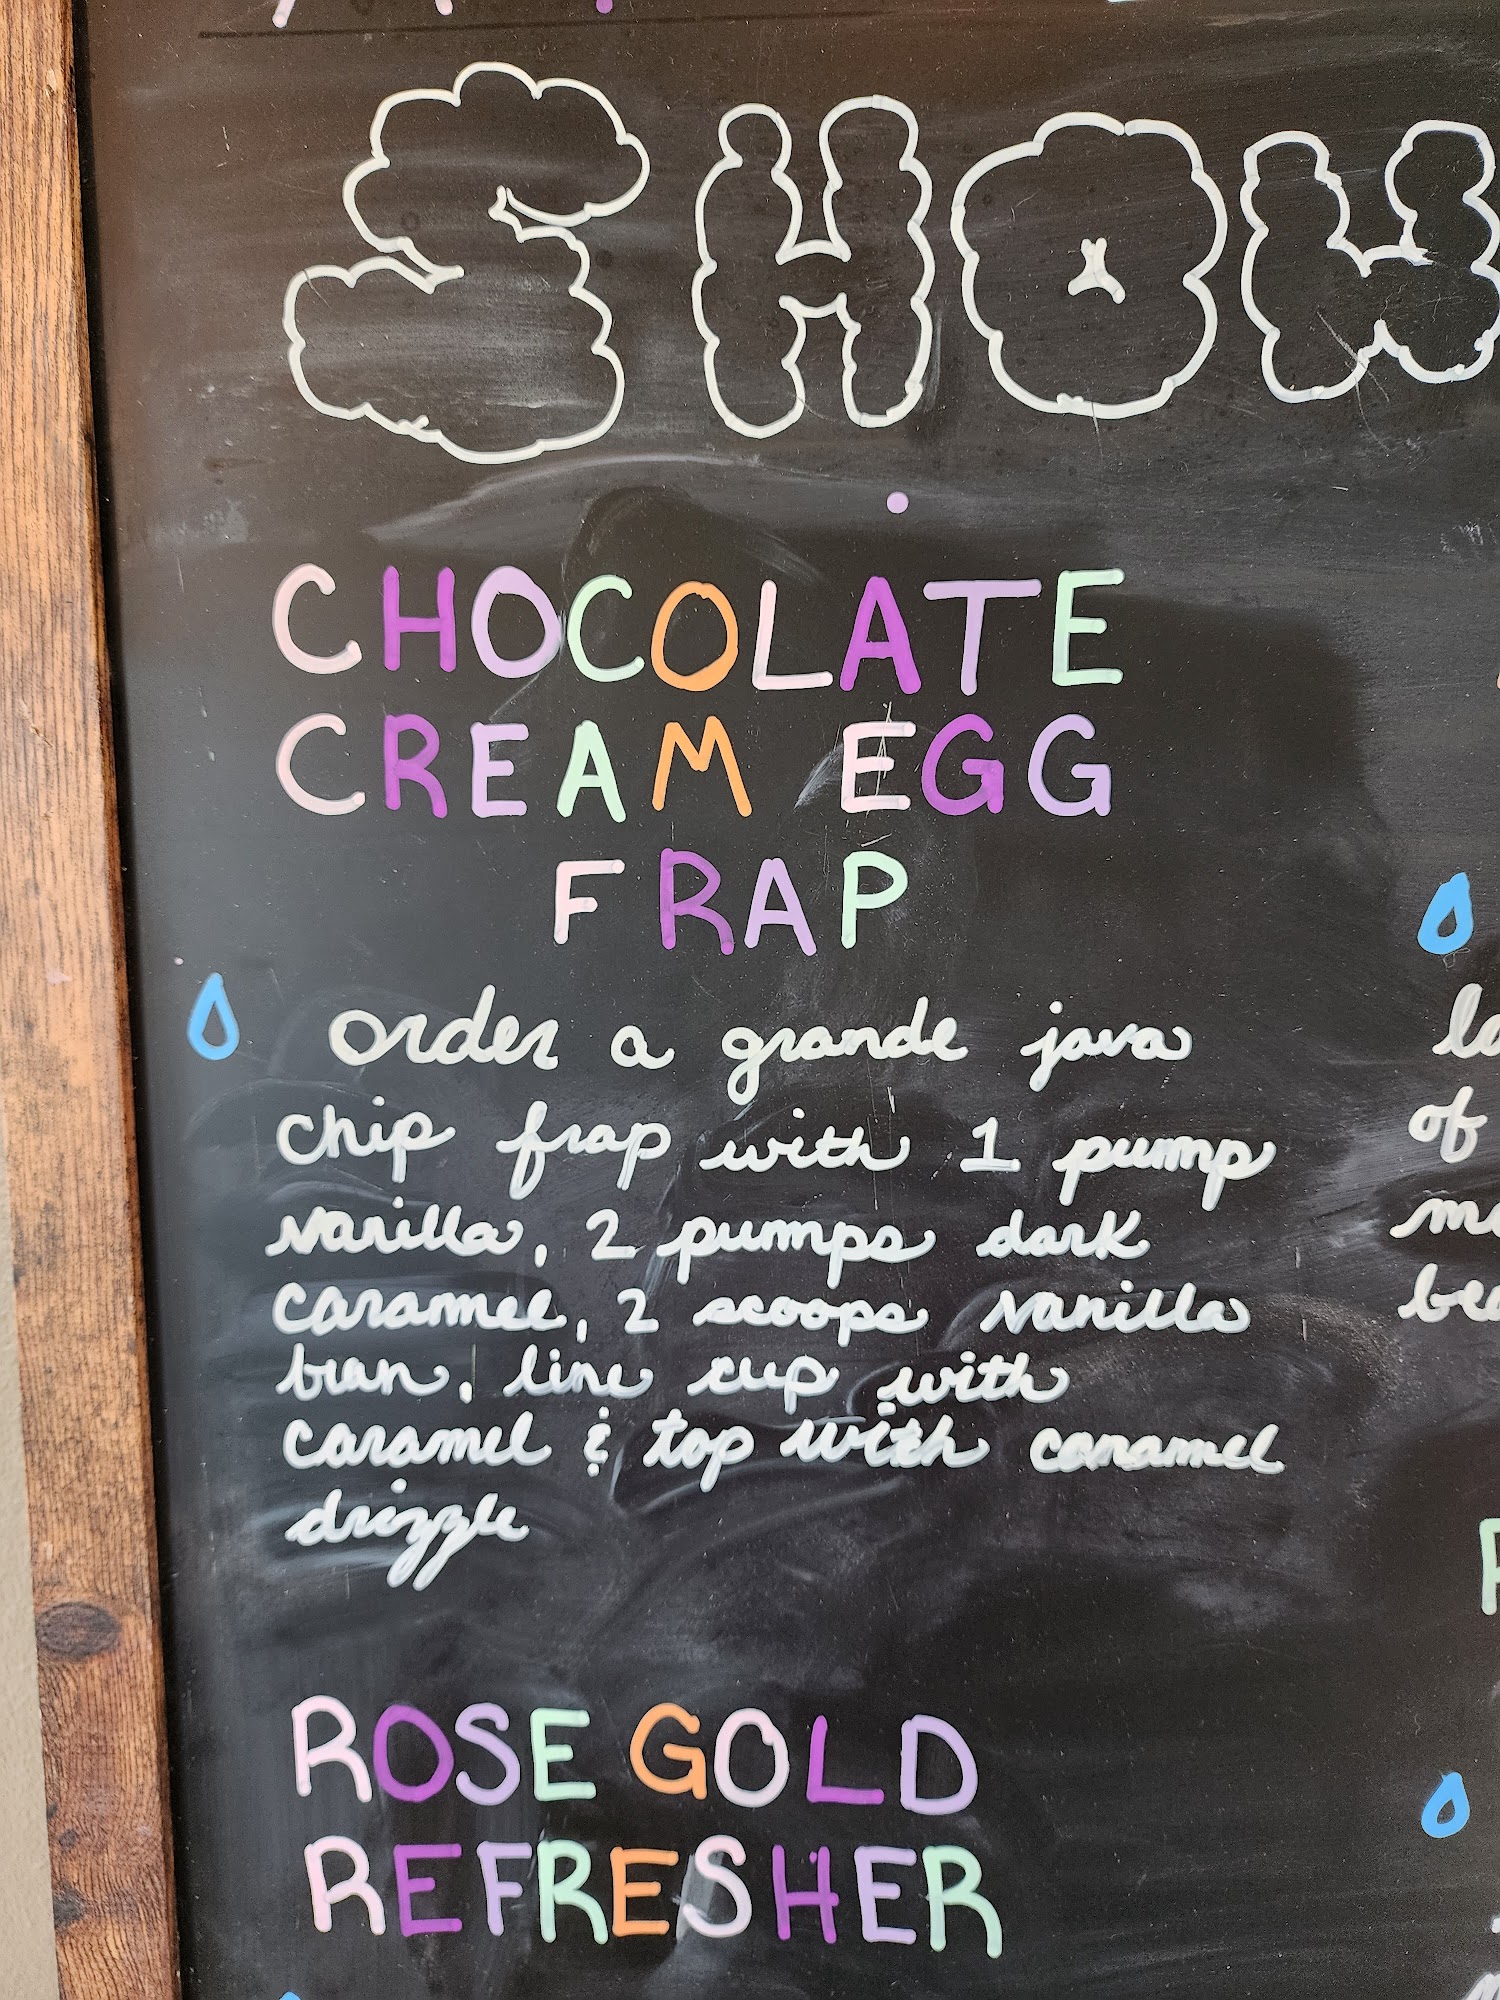 SHOW
CHOCOLATE
CREAM EGG
FRAP
order a grande java
chip frap with 1 pump
vanilla, 2 pumps dark
caramel, 2 scoops vanilla
bean, line cup with
caramel & top with caramel
drizzle
of
ROSE GOLD
REFRESHER